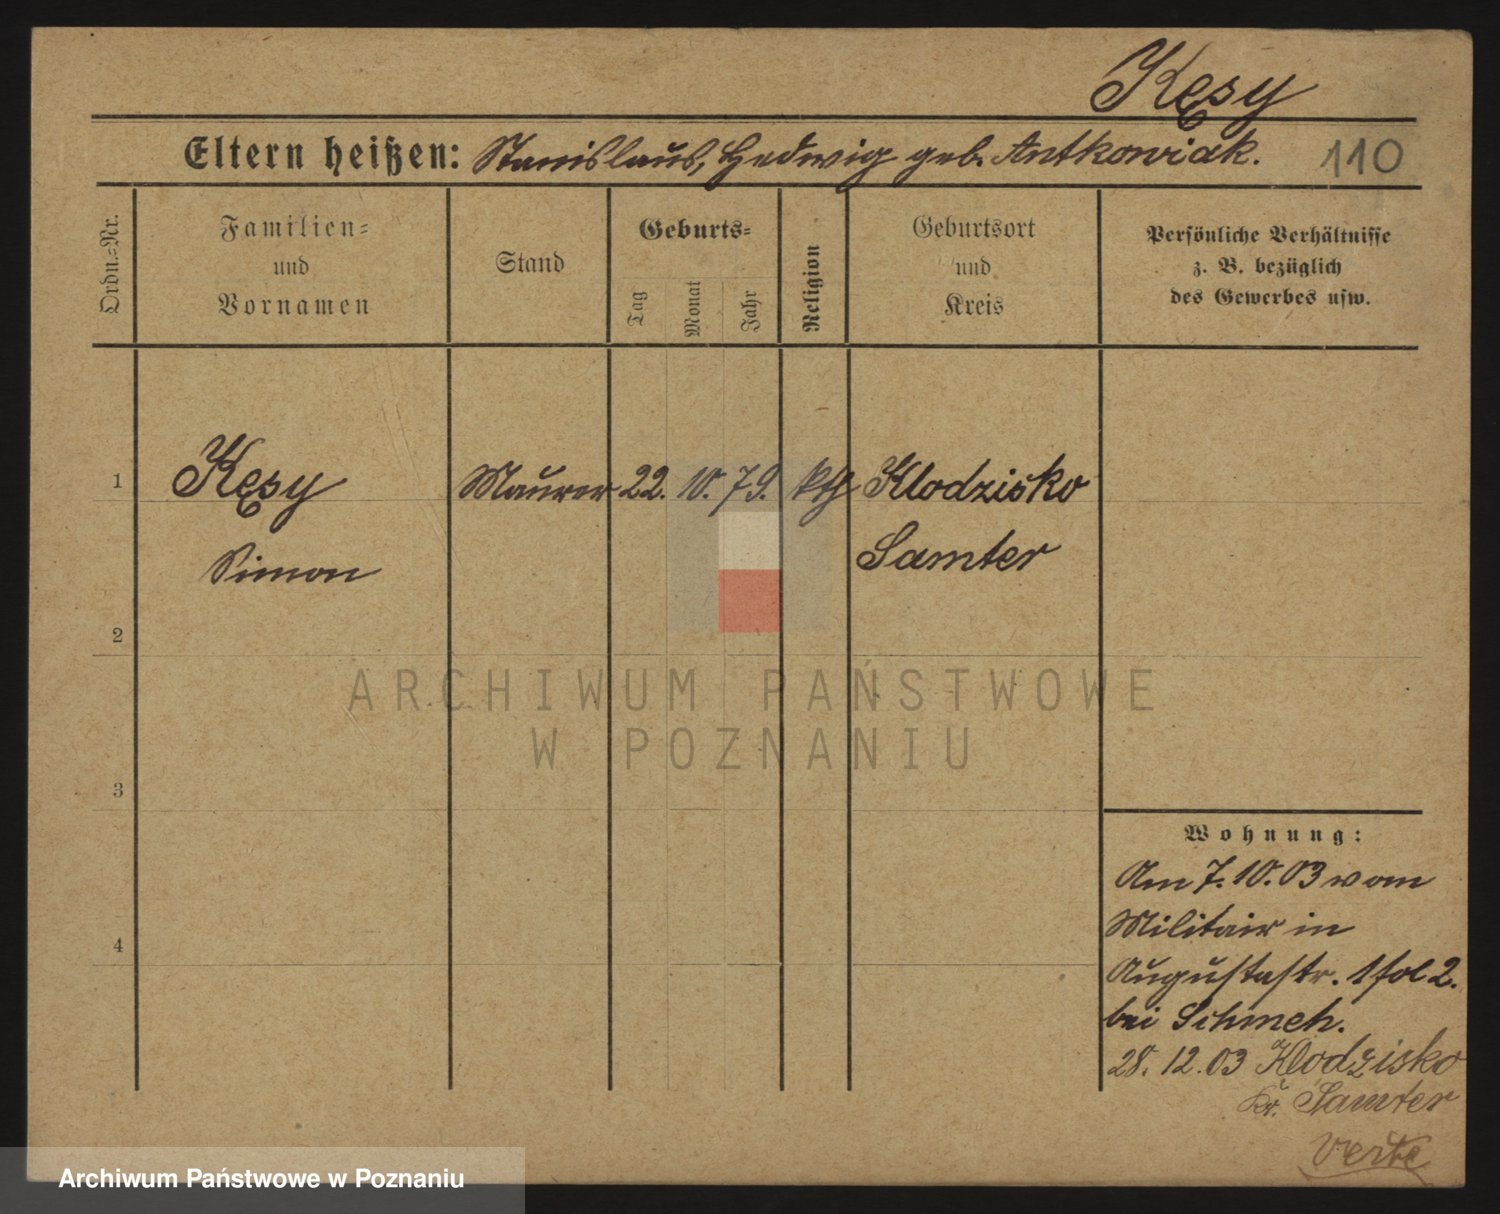 Kęsy
Eltern heißen: Stanislaus, Hedwig geb. Antkowiak.
110
Ordn.=Nr.
Familien=
und
Vornamen
Stand
Geburts=
Tag
Monat
Jahr
Religion
Geburtsort
und
Kreis
Persönliche Verhältnisse
z. B. bezüglich
des Gewerbes usw.
1 Kęsy Maurer 22. 10. 79. kth Klodzisko
Simon Samter
2
ARCHIWUM PAŃSTWOWE
W POZNANIU
3
Wohnung:
Am 7. 10. 03 vom
Militair in
4
Augustastr. 1 fol 2.
bei Schmeh.
28. 12. 03 Klodzisko
Kr. Samter
Verte
Archiwum Państwowe w Poznaniu